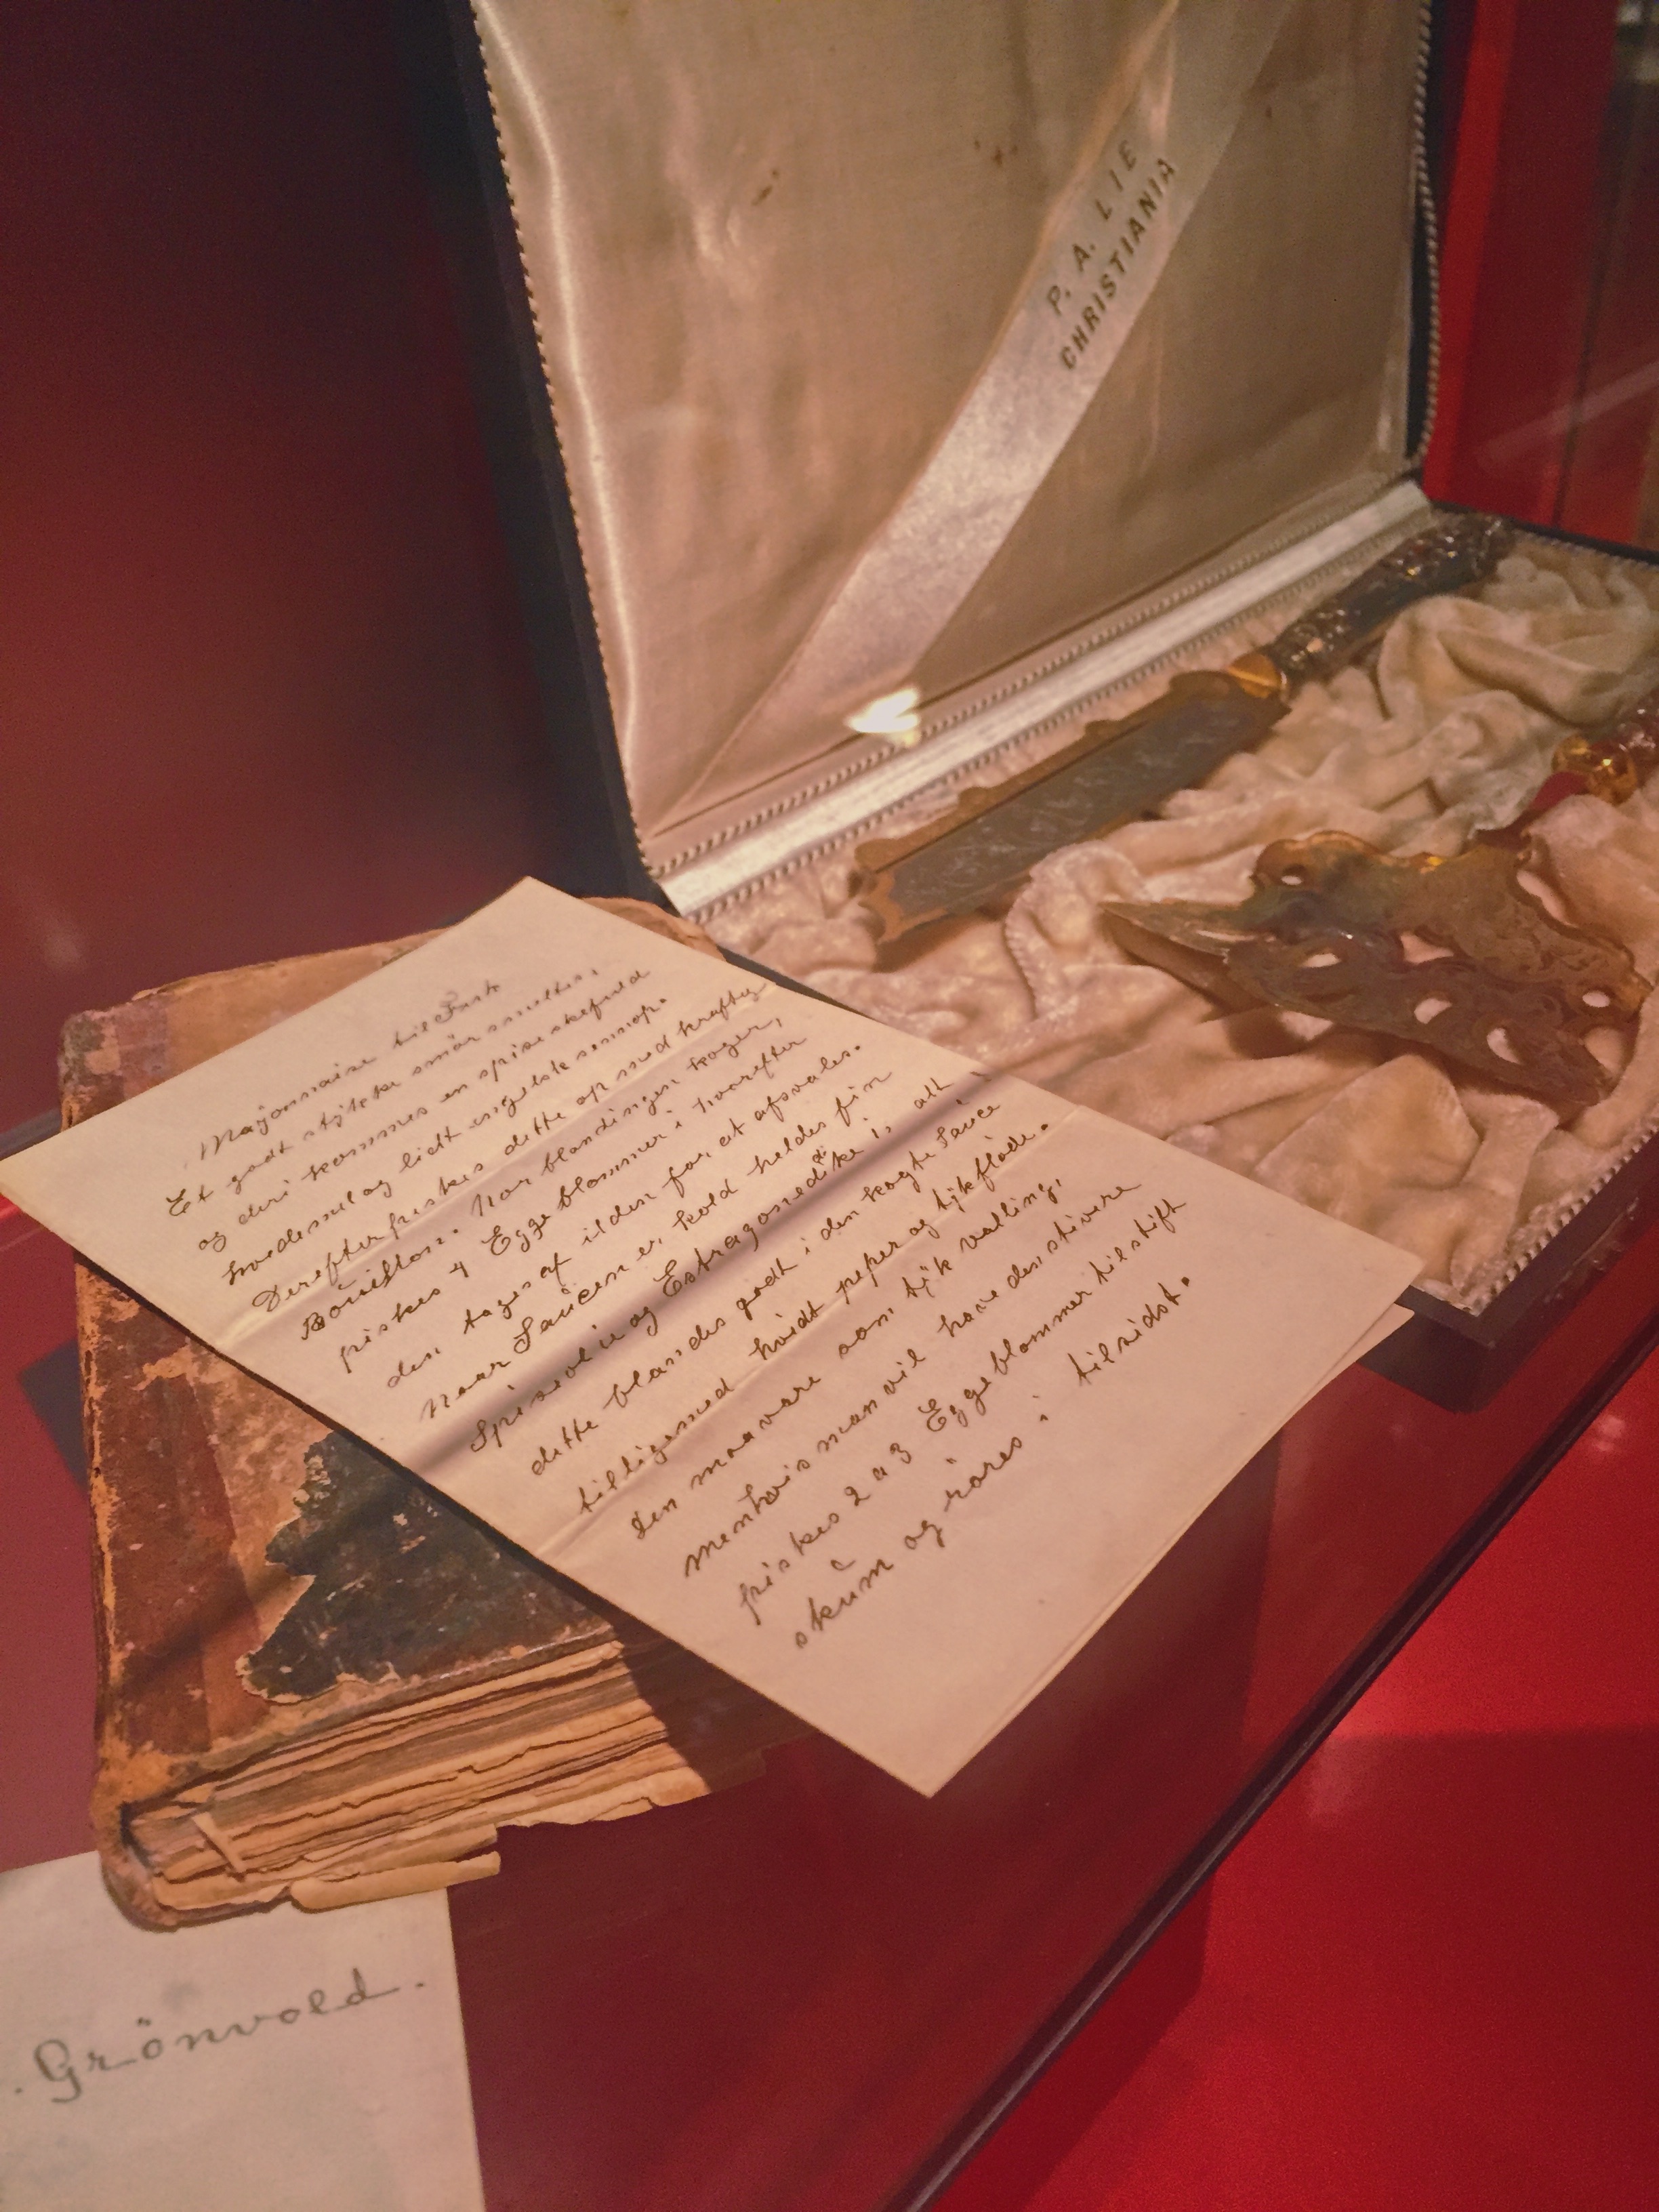 P. A. LIE
CHRISTIANIA
Mayonnaise til Fisk
Et godt stykke smör smeltes,
og deri kommes en spiseskefuld
hvedemel og lidt engelsk sennop.
Derefter spises dette op med kraftig
Bouillon. Nar blandingen koger,
piskes 4 Eggeblommer i hvorefter
den tages af ilden for at afsvales.
Naar Saucen er kold heldes fin
Spiseolie og Estragoneddike i, alt
dette blandes godt i den kogte Sauce
tilligemed hvidt peper og tykflöde.
Den maa være som tyk velling,
men hvis man vil have den stivere
piskes 2 a 3 Eggeblommer til stift
skum og röres i tilsidst.
. Grönvold.